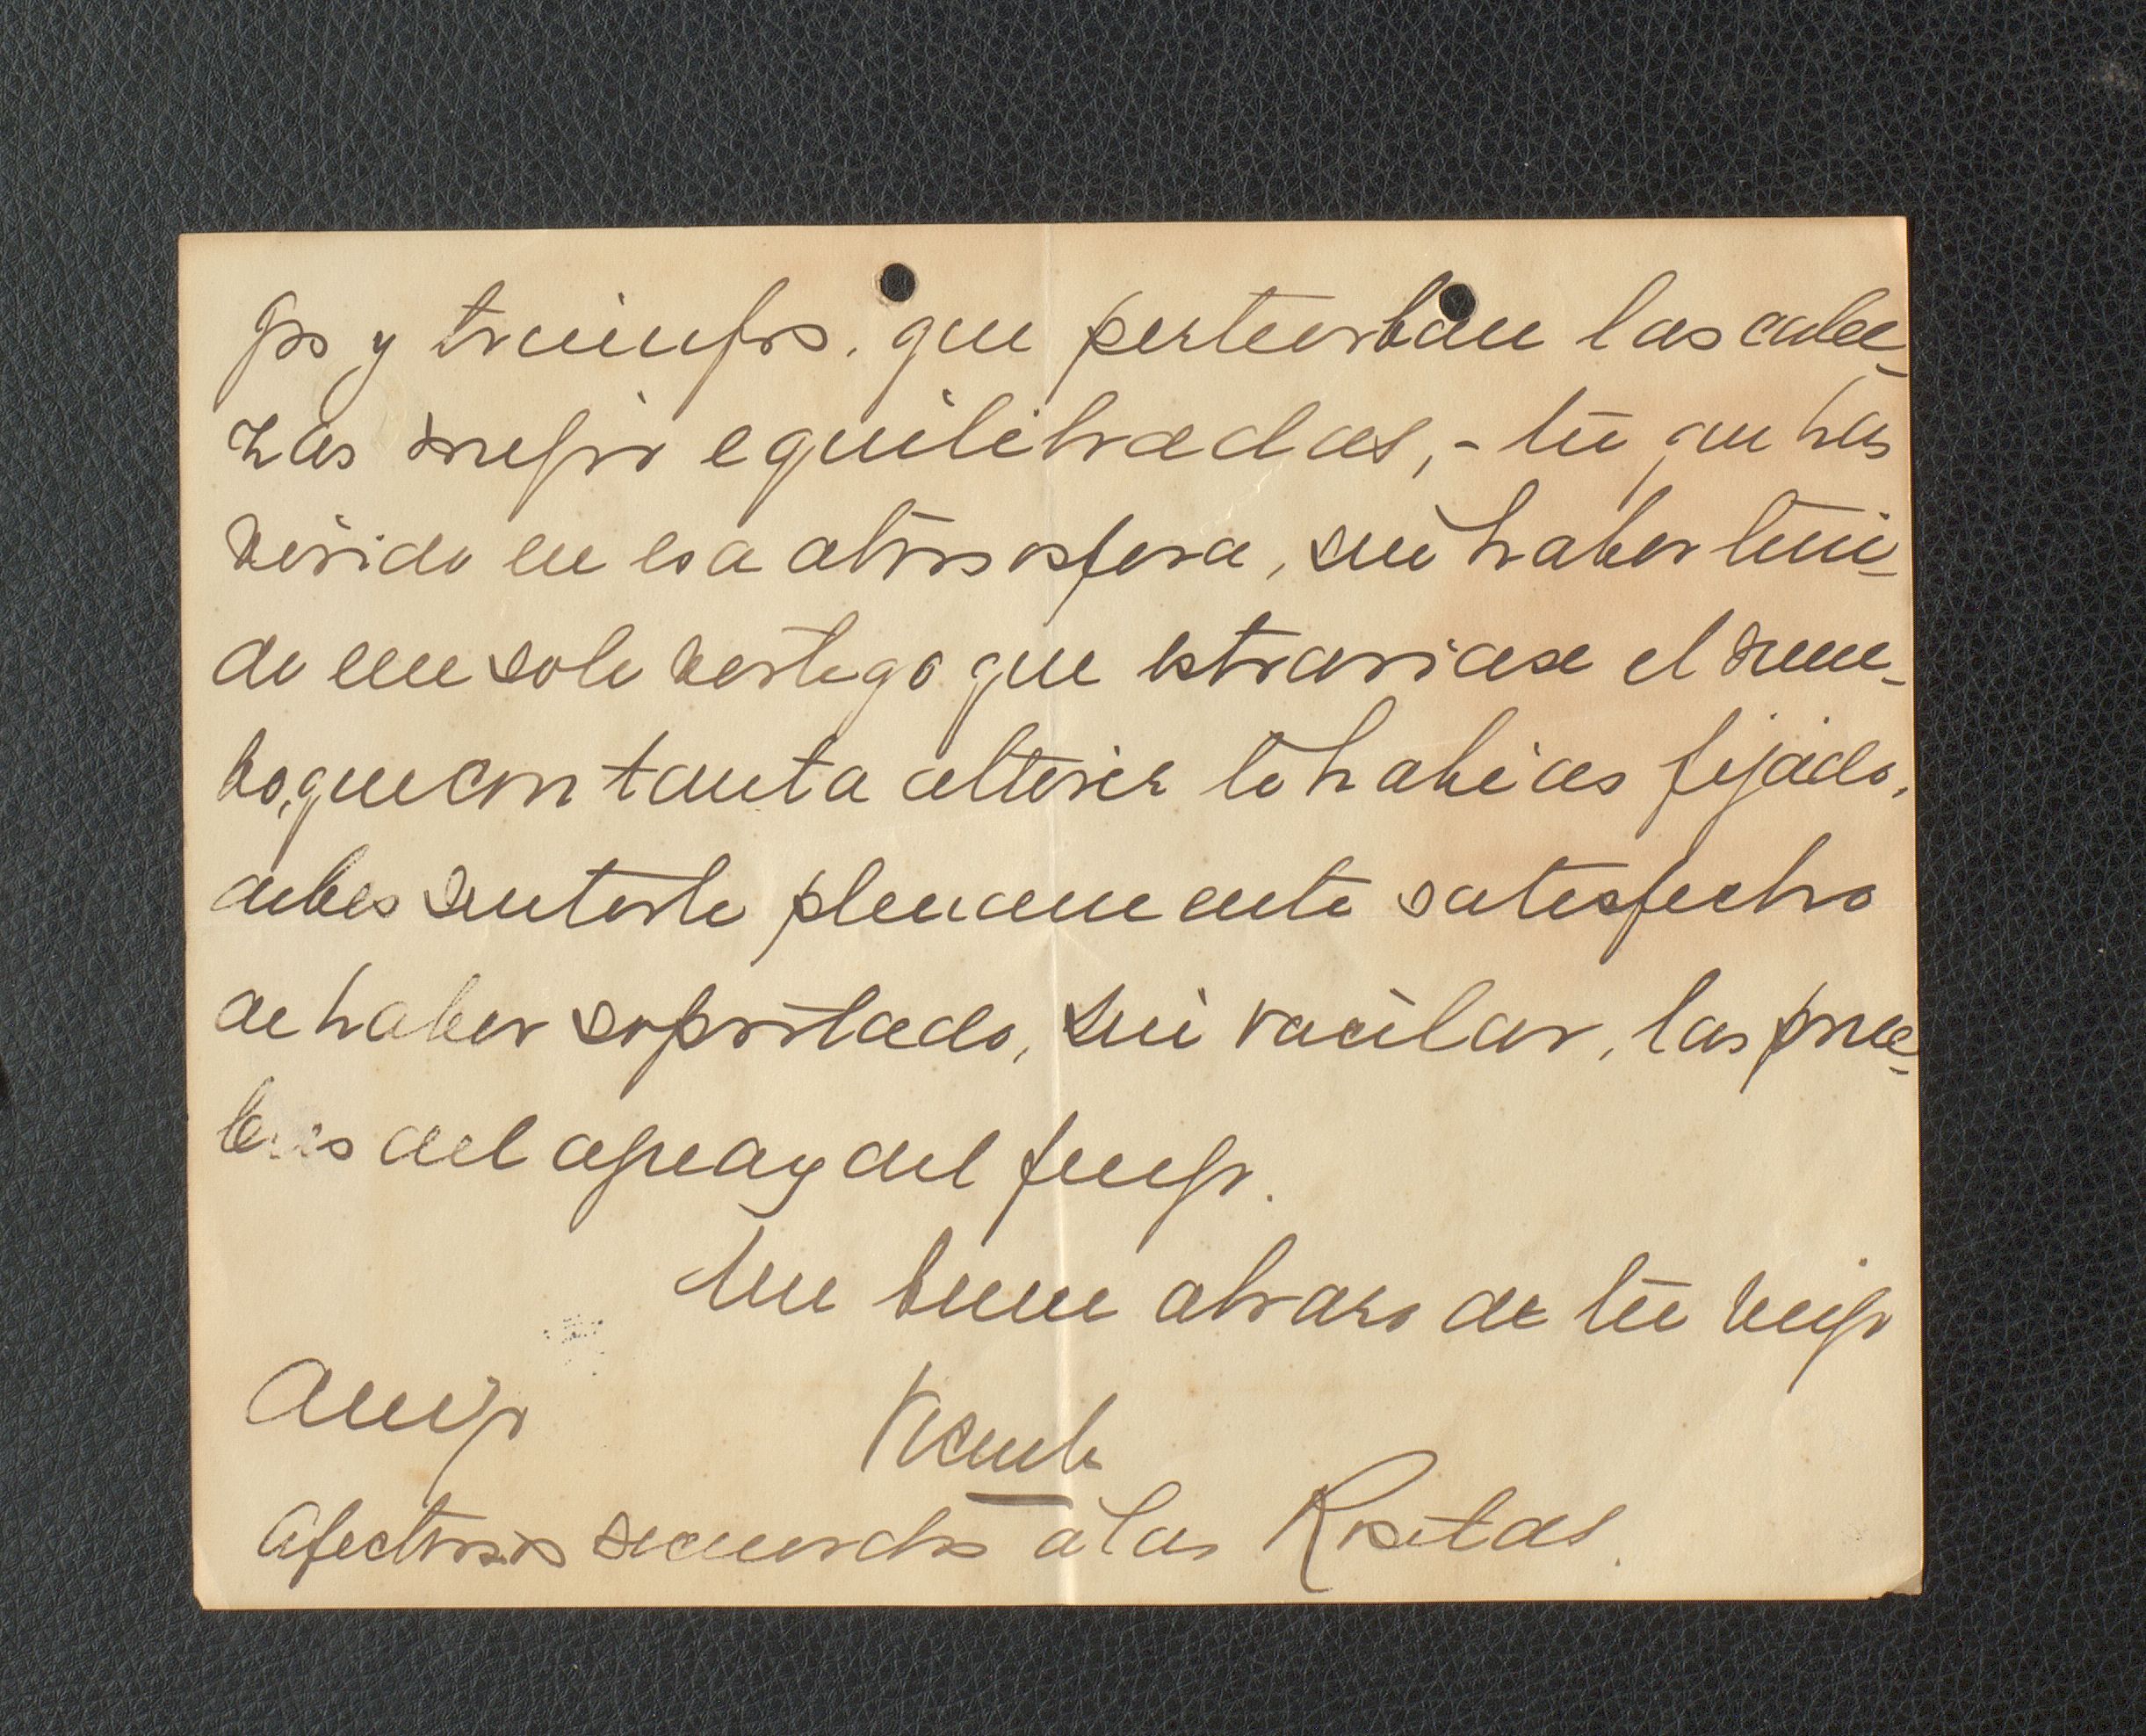 gos y triunfos, que perturban las cabe-
zas mejor equilibradas, - tú que has
vivido en esa atmosfera, sin haber teni-
do un solo vertigo que estraviase el rum-
bo, que con tanta altivez te habias fijado,
debes sentirte plenamente satisfecho
de haber soportado, sin vacilar, las prue-
bas del agua y del fuego.
Un buen abrazo de tu viejo
amigo Vicente
Afectuosos recuerdos á las Rositas.